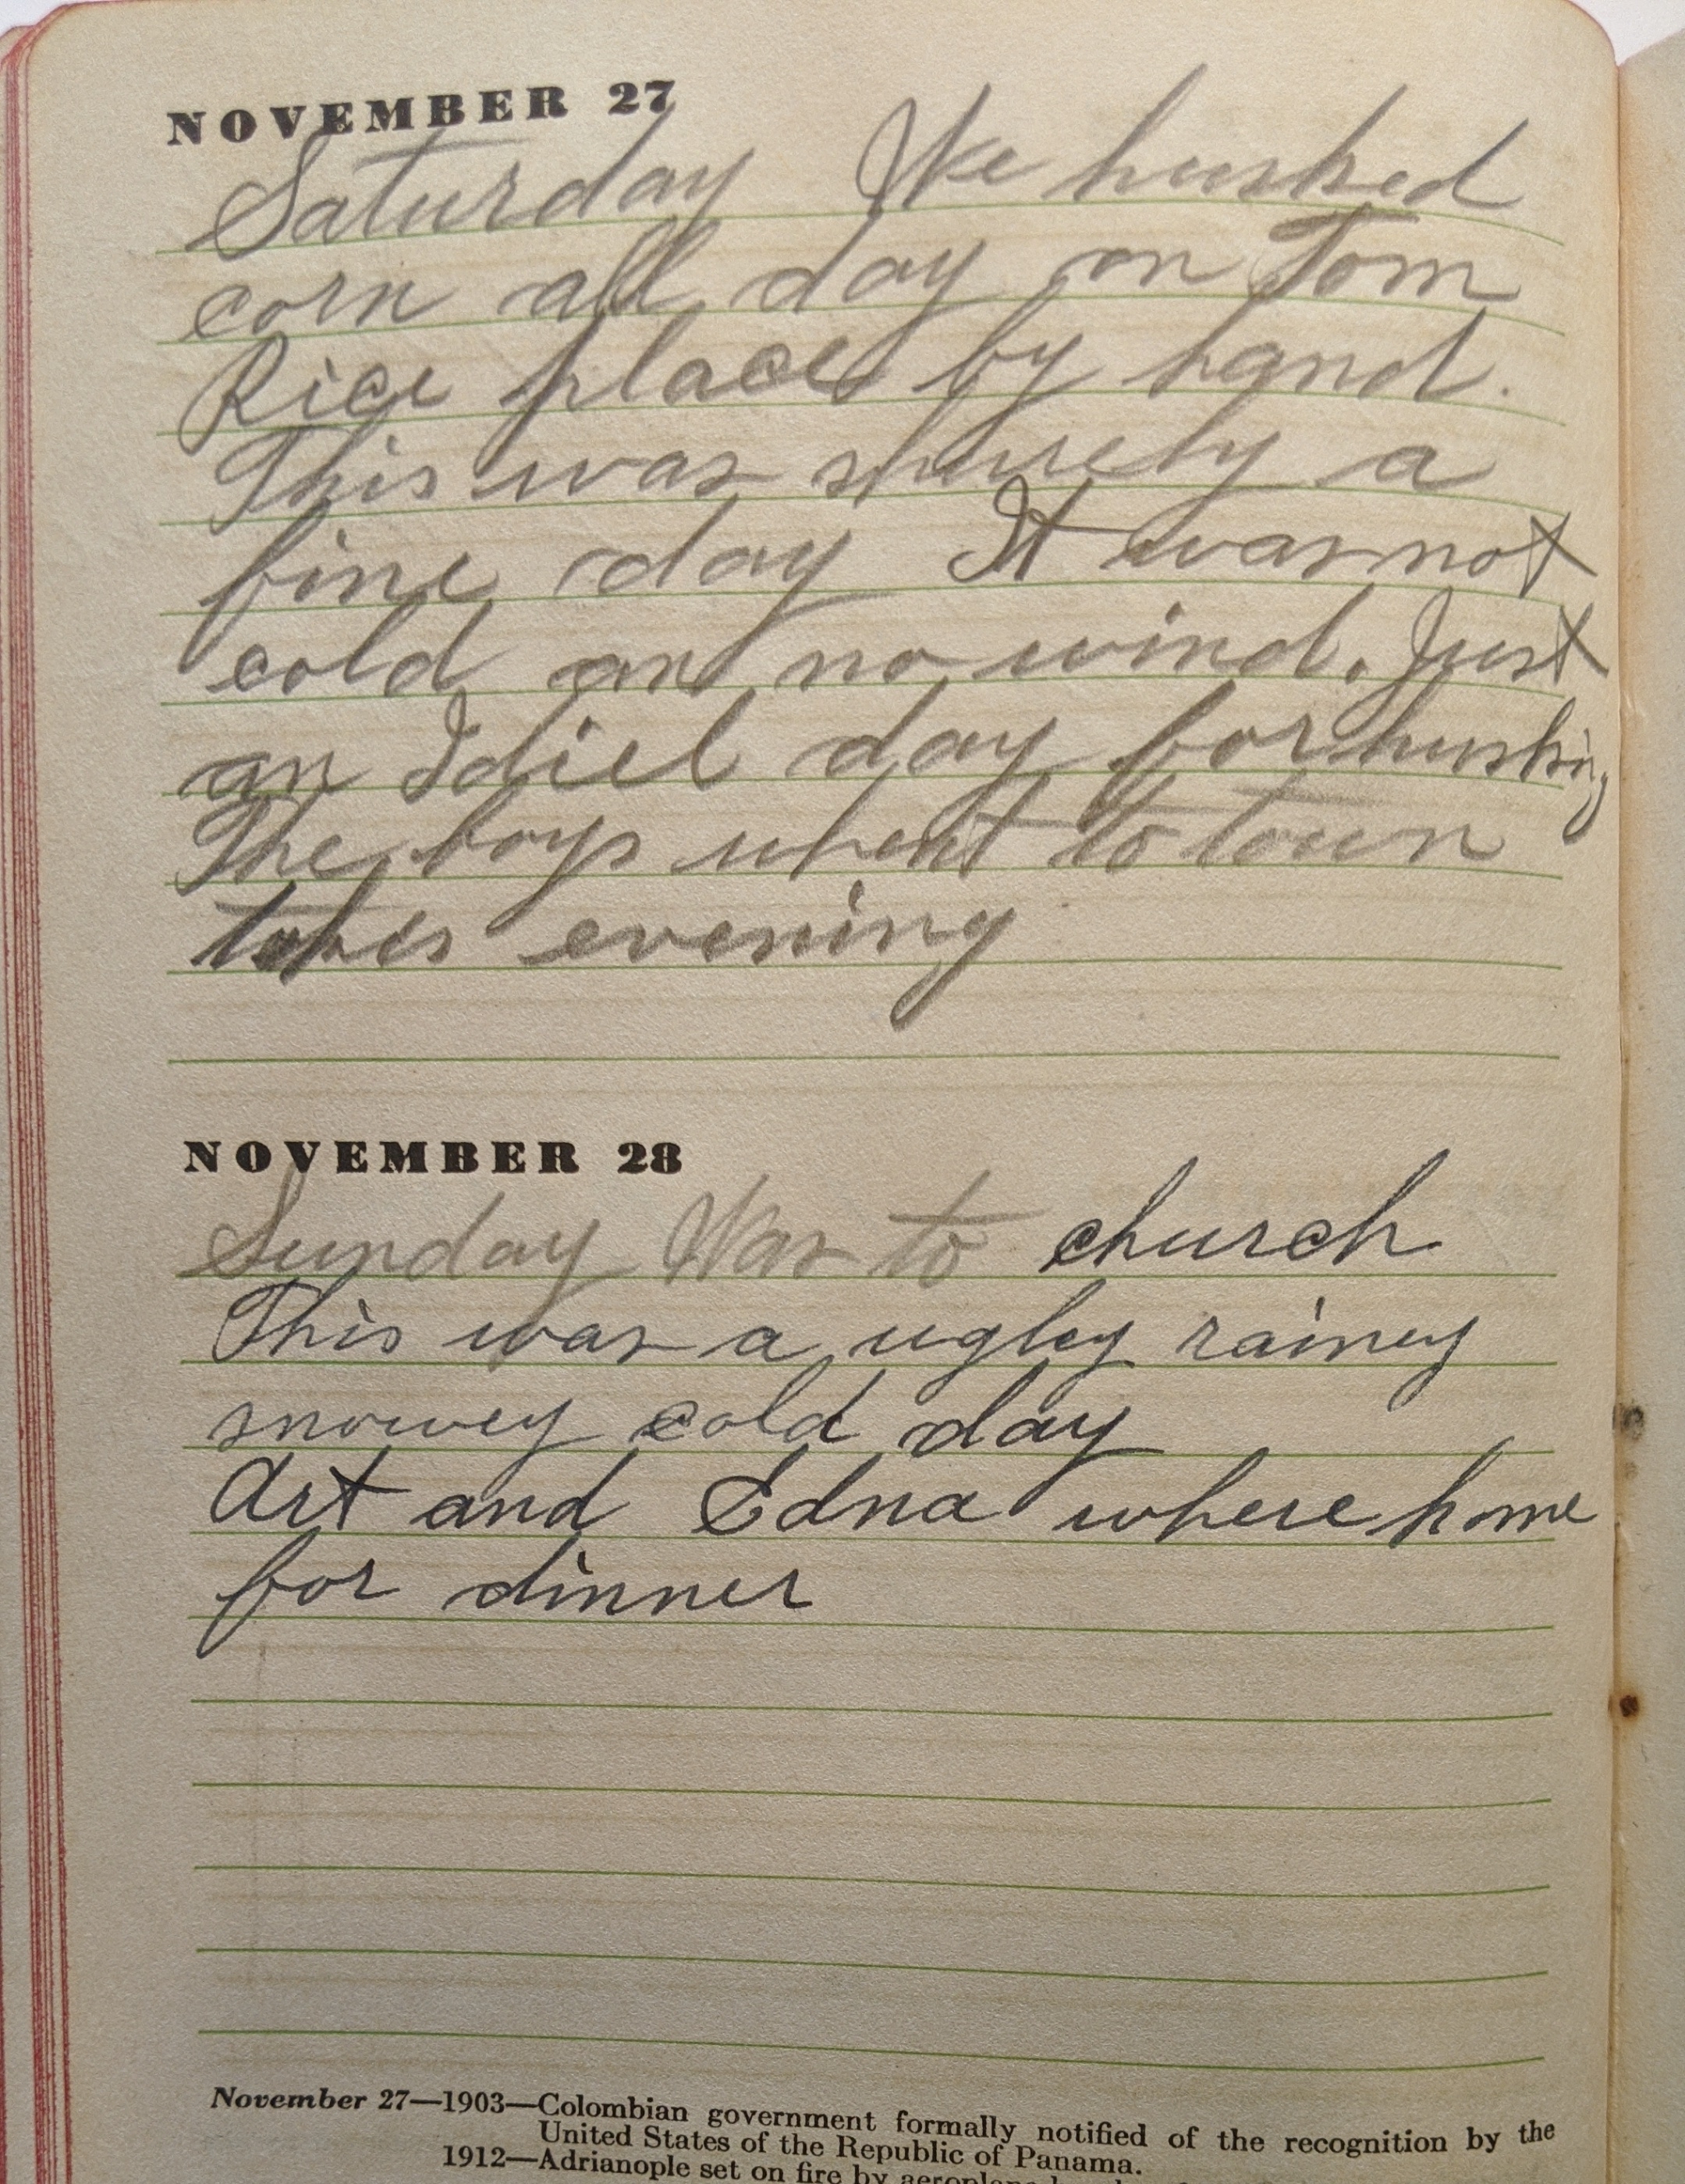 NOVEMBER 27
Saturday We husked
corn all day on Tom
Rice place by hand.
This was shurely a
fine day It was not
cold an no wind. Just
an Idiel day for husking
The boys whent to town
this evening
NOVEMBER 28
Sunday Was to church
This was a ugley rainey
snowey cold day
Art and Edna where home
for dinner
November 27—1903—Colombian government formally notified of the recognition by the
United States of the Republic of Panama.
1912—Adrianople set on fire by aeroplane